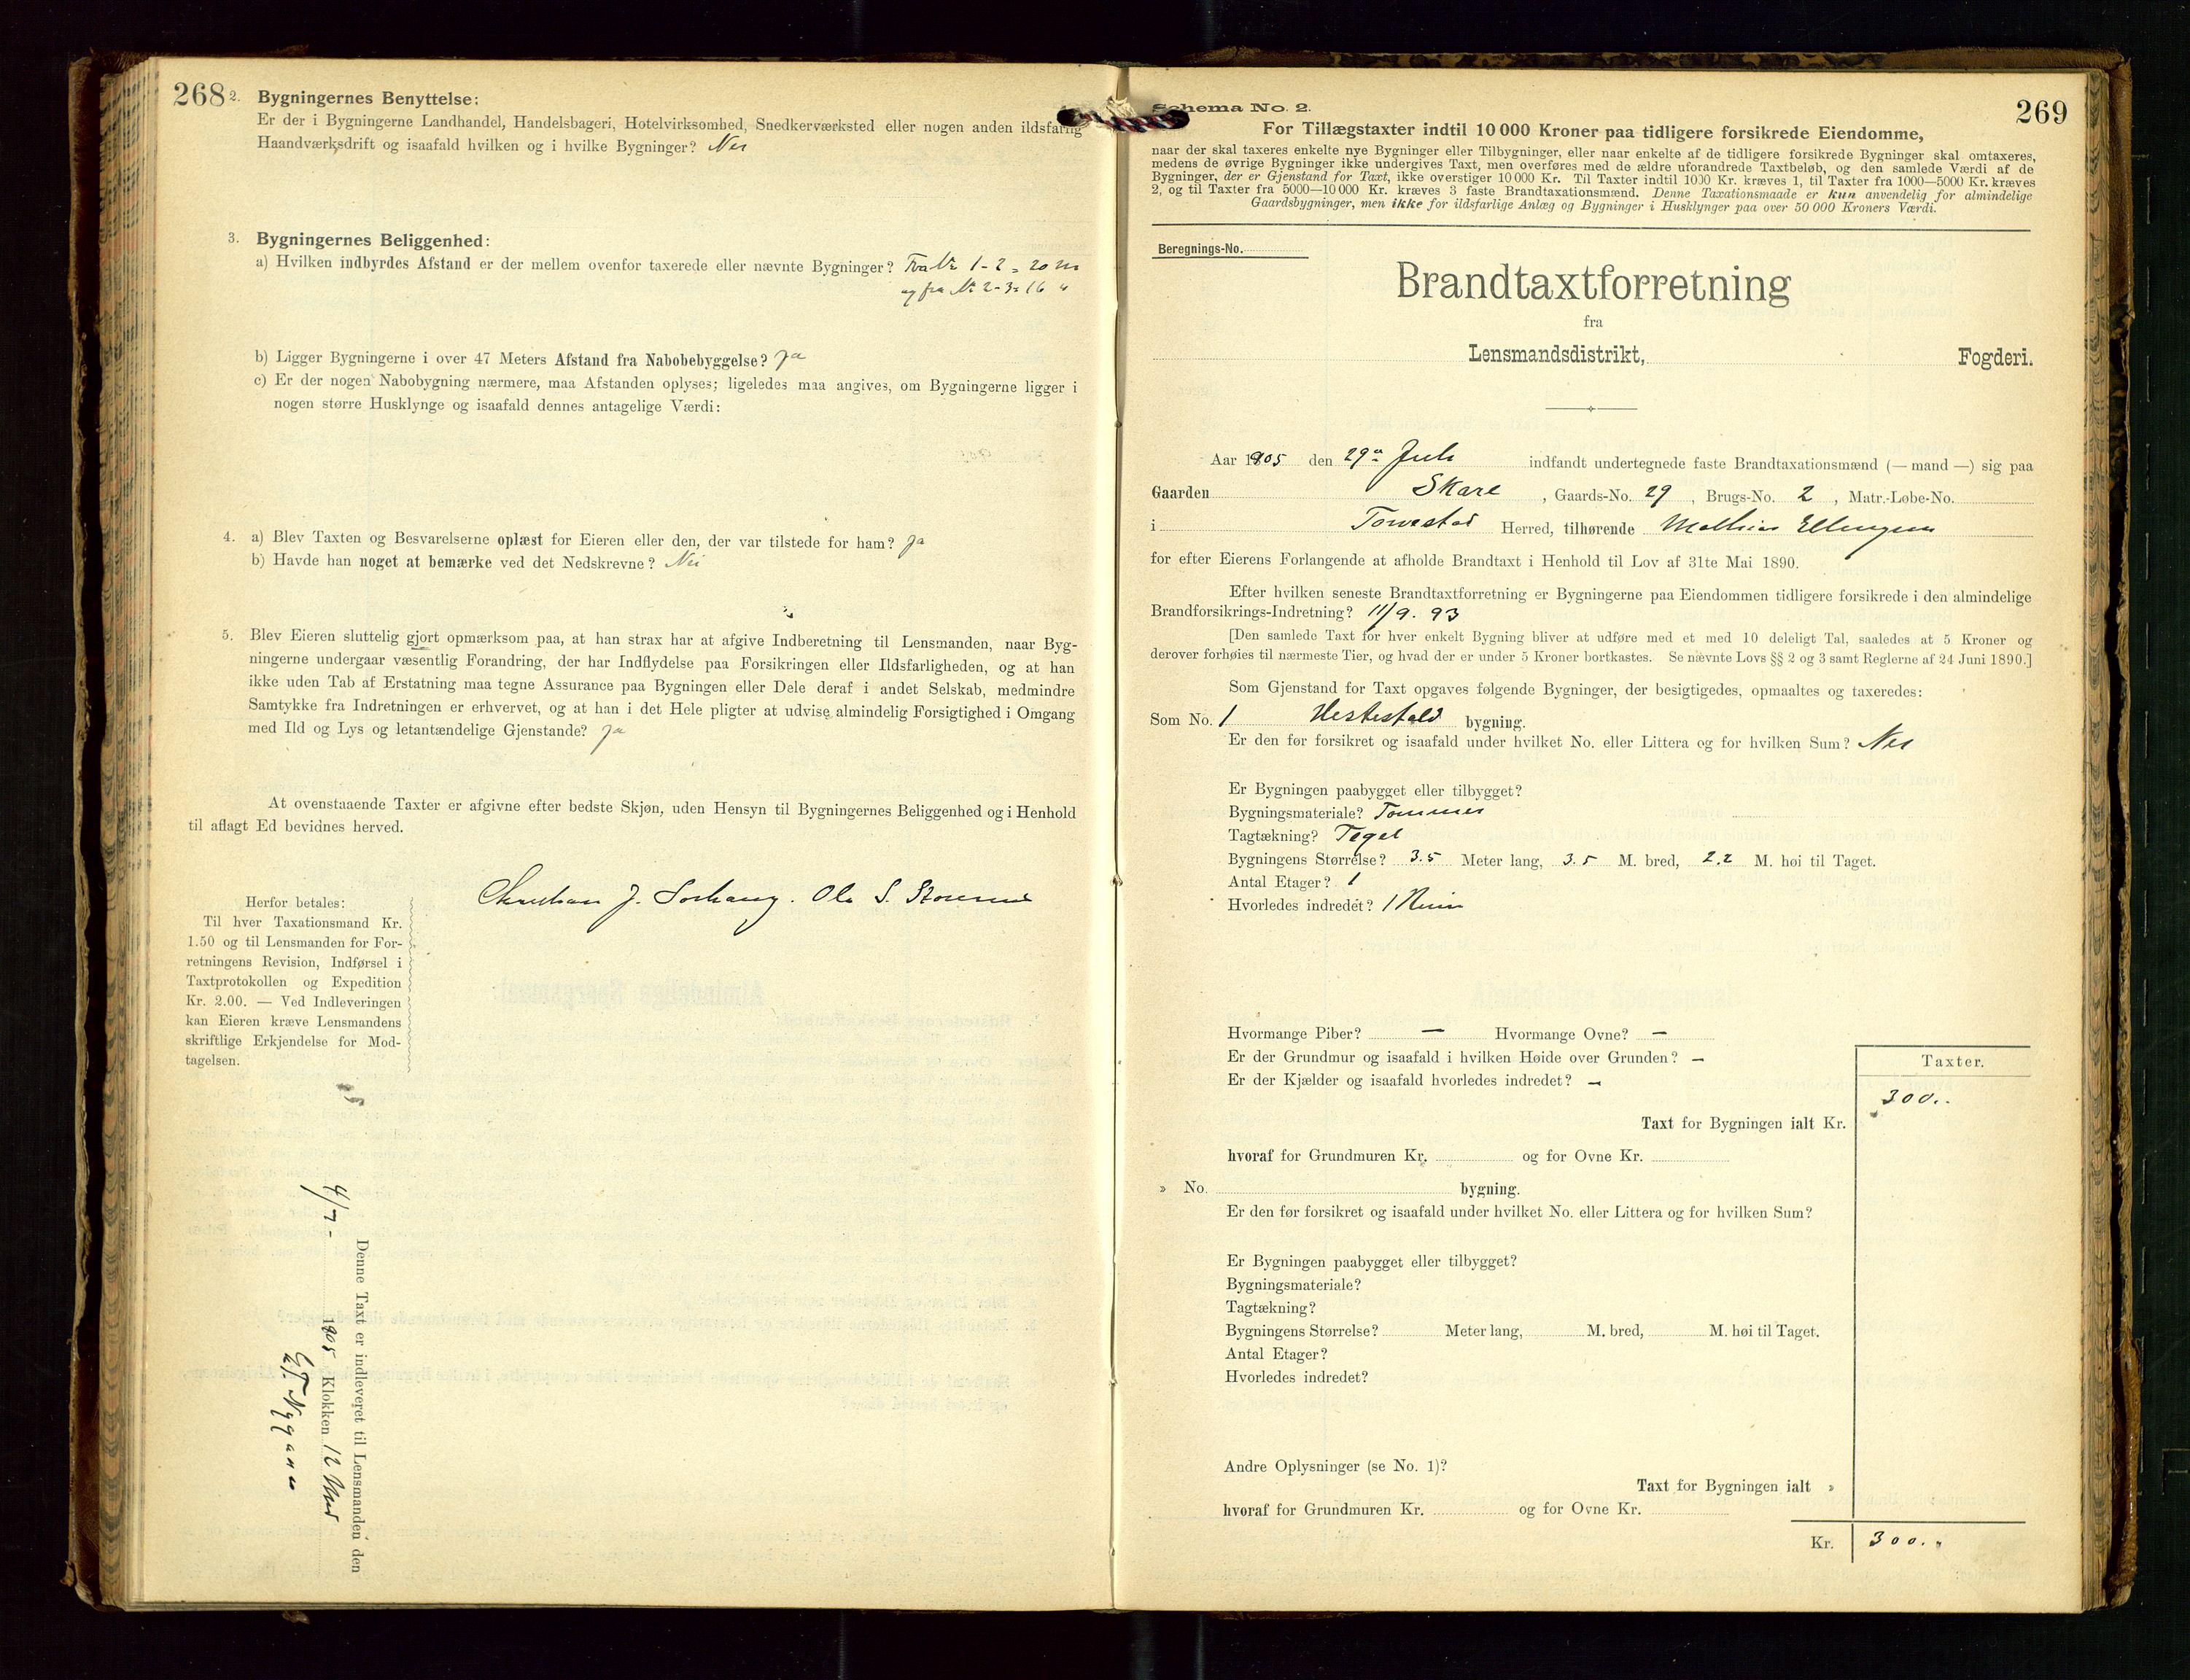 268
2. Bygningernes Benyttelse:
Er der i Bygningerne Landhandel, Handelsbageri, Hotelvirksomhed, Snedkerværksted eller nogen anden ildsfarlig
Haandværksdrift og isaafald hvilken og i hvilke Bygninger? Nei
3. Bygningernes Beliggenhed:
a) Hvilken indbyrdes Afstand er der mellem ovenfor taxerede eller nævnte Bygninger? Fra No 1-2 = 20 m
og fra No 2-3 = 16 "
b) Ligger Bygningerne i over 47 Meters Afstand fra Nabobebyggelse? Ja
c) Er der nogen Nabobygning nærmere, maa Afstanden oplyses; ligeledes maa angives, om Bygningerne ligger i
nogen større Husklynge og isaafald dennes antagelige Værdi:
4. a) Blev Taxten og Besvarelserne oplæst for Eieren eller den, der var tilstede for ham? Ja
b) Havde han noget at bemærke ved det Nedskrevne? Nei
5. Blev Eieren sluttelig gjort opmærksom paa, at han strax har at afgive Indberetning til Lensmanden, naar Byg-
ningerne undergaar væsentlig Forandring, der har Indflydelse paa Forsikringen eller Ildsfarligheden, og at han
ikke uden Tab af Erstatning maa tegne Assurance paa Bygningen eller Dele deraf i andet Selskab, medmindre
Samtykke fra Indretningen er erhvervet, og at han i det Hele pligter at udvise almindelig Forsigtighed i Omgang
med Ild og Lys og letantændelige Gjenstande? Ja
At ovenstaaende Taxter er afgivne efter bedste Skjøn, uden Hensyn til Bygningernes Beliggenhed og i Henhold
til aflagt Ed bevidnes herved.
J. Ola S.
Herfor betales:
Til hver Taxationsmand Kr.
1.50 og til Lensmanden for For-
retningens Revision, Indførsel i
Taxtprotokollen og Expedition
Kr. 2.00. — Ved Indleveringen
kan Eieren kræve Lensmandens
skriftlige Erkjendelse for Mod-
tagelsen.
Denne Taxt er indleveret til Lensmanden den
4/7 - 1905 Klokken 12
269
Schema No. 2.
For Tillægstaxter indtil 10 000 Kroner paa tidligere forsikrede Eiendomme,
naar der skal taxeres enkelte nye Bygninger eller Tilbygninger, eller naar enkelte af de tidligere forsikrede Bygninger skal omtaxeres,
medens de øvrige Bygninger ikke undergives Taxt, men overføres med de ældre uforandrede Taxtbeløb, og den samlede Værdi af de
Bygninger, der er Gjenstand for Taxt, ikke overstiger 10 000 Kr. Til Taxter indtil 1000 Kr. kræves 1, til Taxter fra 1000—5000 Kr. kræves
2, og til Taxter fra 5000—10 000 Kr. kræves 3 faste Brandtaxationsmænd. Denne Taxationsmaade er kun anvendelig for almindelige
Gaardsbygninger, men ikke for ildsfarlige Anlæg og Bygninger i Husklynger paa over 50 000 Kroners Værdi.
Beregnings-No.
Brandtaxtforretning
fra
Lensmandsdistrikt, Fogderi.
Aar 1905 den 29de Juli indfandt undertegnede faste Brandtaxationsmænd (— mand —) sig paa
Gaarden Skare, Gaards-No. 29, Brugs-No. 2, Matr.-Løbe-No.
i Torvestad Herred, tilhørende Mathias Ellingsen
for efter Eierens Forlangende at afholde Brandtaxt i Henhold til Lov af 31te Mai 1890.
Efter hvilken seneste Brandtaxtforretning er Bygningerne paa Eiendommen tidligere forsikrede i den almindelige
Brandforsikrings-Indretning? 11/9. 93
[Den samlede Taxt for hver enkelt Bygning bliver at udføre med et med 10 deleligt Tal, saaledes at 5 Kroner og
derover forhøies til nærmeste Tier, og hvad der er under 5 Kroner bortkastes. Se nævnte Lovs §§ 2 og 3 samt Reglerne af 24 Juni 1890.]
Som Gjenstand for Taxt opgaves følgende Bygninger, der besigtigedes, opmaaltes og taxeredes:
Som No. 1 Hestestald bygning.
Er den før forsikret og isaafald under hvilket No. eller Littera og for hvilken Sum? Nei
Er Bygningen paabygget eller tilbygget?
Bygningsmateriale? Tømmer
Tagtækning? Tegel
Bygningens Størrelse? 3.5 Meter lang, 3.5 M. bred, 2.2 M. høi til Taget.
Antal Etager? 1
Hvorledes indredet? 1 Rum
Hvormange Piber? — Hvormange Ovne? —
Er der Grundmur og isaafald i hvilken Høide over Grunden? —
Er der Kjælder og isaafald hvorledes indredet? —
Taxter.
Taxt for Bygningen ialt Kr. 300..
hvoraf for Grundmuren Kr. og for Ovne Kr.
» No. bygning.
Er den før forsikret og isaafald under hvilket No. eller Littera og for hvilken Sum?
Er Bygningen paabygget eller tilbygget?
Bygningsmateriale?
Tagtækning?
Bygningens Størrelse? Meter lang, M. bred, M. høi til Taget.
Antal Etager?
Hvorledes indredet?
Andre Oplysninger (se No. 1)?
Taxt for Bygningen ialt »
hvoraf for Grundmuren Kr. og for Ovne Kr.
Kr. 300..